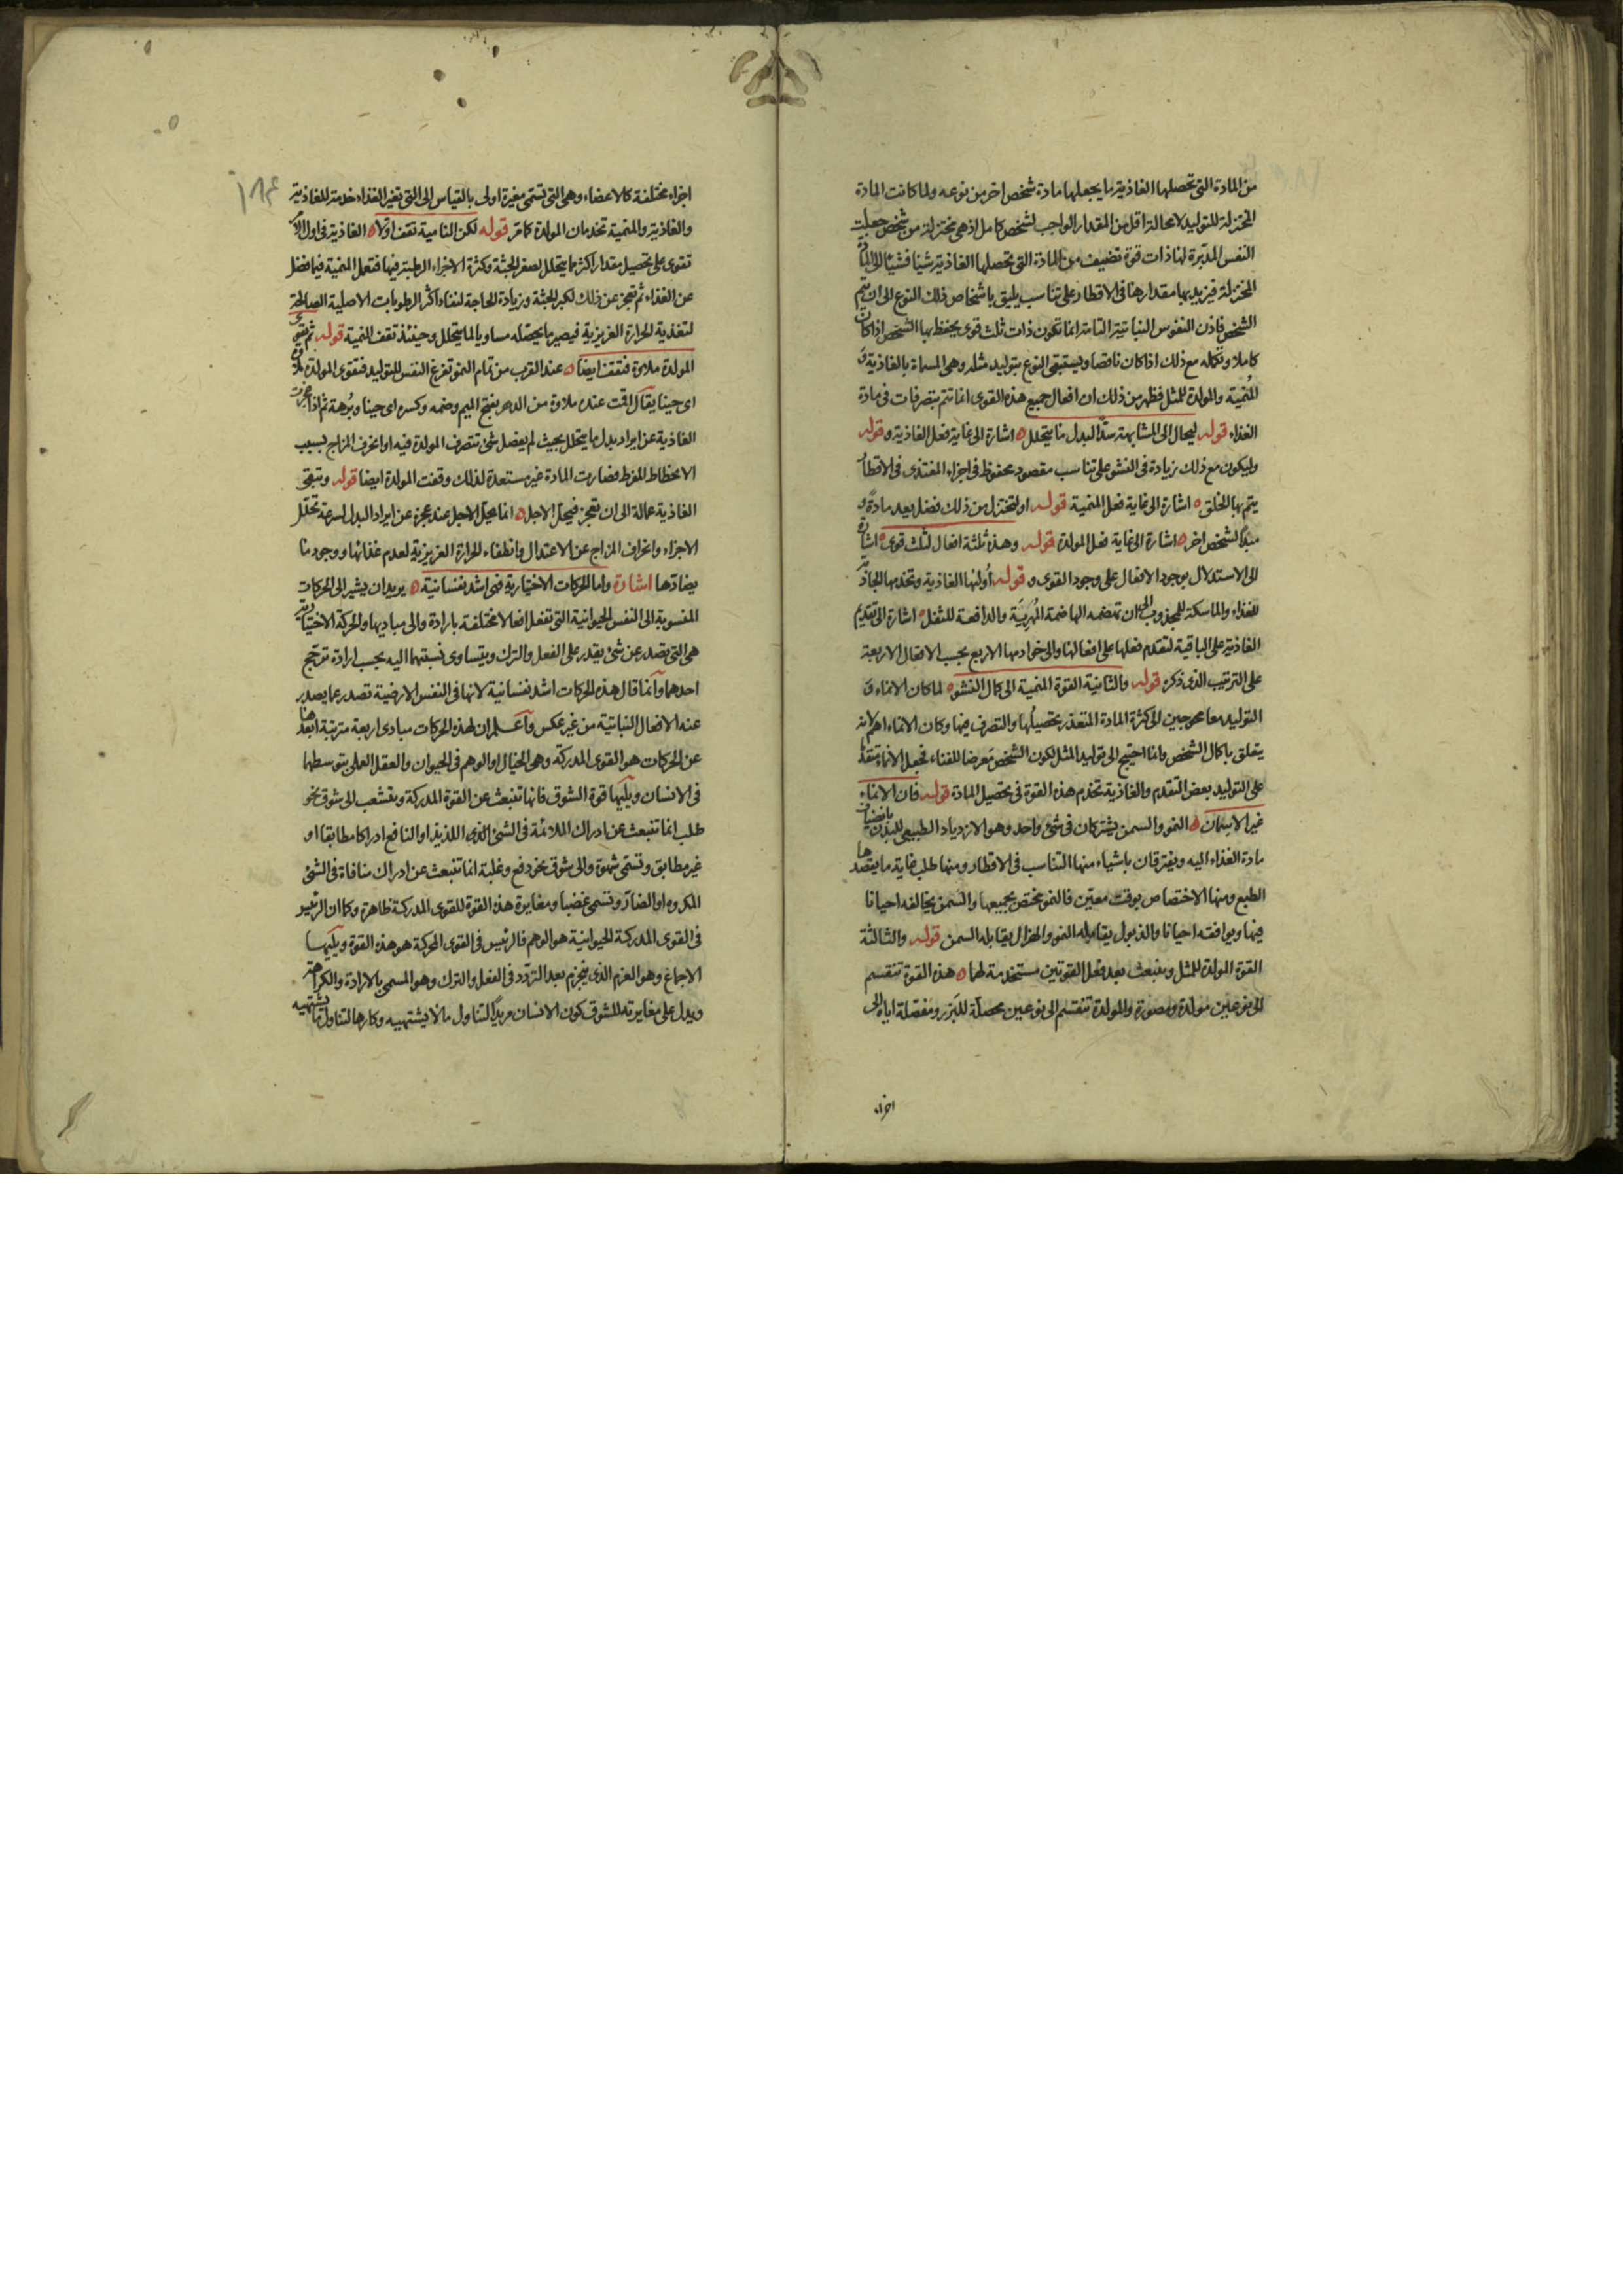 من المادة التى تحصلها الغاذية ما يجعلها مادة شخص اخر من نوعه ولما كانت المادة
المختزلة للتوليد لا محالة اقل من المقدار الواجب لشخص كامل اذ هى مختزلة من شخص جعلت
النفس المدبرة لها ذات قوة تضيف من المادة التى تحصلها الغاذية شيئا فشيئا الى المادة
المختزلة فيزيد بها مقدارها فى الاقطار على تناسب يليق باشخاص ذلك النوع الى ان يتم
الشخص فاذن النفوس النباتية التامة انما تكون ذات ثلث قوى يحفظ بها الشخص اذا كان
كاملا وتكمله مع ذلك اذا كان ناقصا ويستبقى النوع بتوليد مثله وهى المسماة بالغاذية و
المنمية والمولدة للمثل فظهر من ذلك ان افعال جميع هذه القوى انما تتم بتصرفات فى مادة
الغذاء قوله ليحال الى المشابهة سدا لبدل ما يتحلل اشارة الى غاية فعل الغاذية وقوله
وليكون مع ذلك زيادة فى النشو على تناسب مقصود محفوظ فى اجزاء المغتذى فى الاقطار
يتم بها الخلق اشارة الى غاية فعل المنمية قوله او ليختزل من ذلك فضل يعد مادة و
مبدأ لشخص اخر اشارة الى غاية فعل المولدة قوله وهذه ثلثة افعال لثلث قوى اشارة
الى الاستدلال بوجود الافعال على وجود القوى وقوله اولها الغاذية وتخدمها الجاذبة
للغذاء والماسكة للمجذوب الى ان تهضمه الهاضمة المهرية والدافعة للثفل اشارة الى تقديم
الغاذية على الباقية لتقدم فعلها على افعالها والى خوادمها الاربع بحسب الافعال الاربعة
على الترتيب الذى ذكره قوله والثانية القوة المنمية الى كمال النشو لما كان الانماء و
التوليد معا محوجين الى كثرة المادة المتعذر تحصيلها والتصرف فيها وكان الانماء اهم لانه
يتعلق باكمال الشخص وانما احتيج الى توليد المثل لكون الشخص معرضا للفناء فجعل الانماء متقدما
على التوليد بعض التقدم والغاذية تخدم هذه القوة فى تحصيل المادة قوله فان الانماء
غير الاسمان النمو والسمن يشتركان فى شئ واحد وهو الازدياد الطبيعى للبدن بانضياف
مادة الغذاء اليه ويفترقان باشياء منها التناسب فى الاقطار ومنها طلب غاية ما يقصدها
الطبع ومنها الاختصاص بوقت معين فالنمو مختص بجميعها والسمن يخالفه احيانا
فيها ويوافقه احيانا والذبول يقابله النمو والهزال يقابله السمن قوله والثالثة
القوة المولدة للمثل وينبعث بعد فعل القوتين مستخدمة لهما هذه القوة تنقسم
الى نوعين مولدة ومصورة والمولدة تنقسم الى نوعين محصلة للبزر ومفصلة اياه الى
اجزاء
اجزاء مختلفة كالاعضاء وهى التى تسمى مغيرة اولى بالقياس الى التى تغير الغذاء خدمة للغاذية
والغاذية والمنمية تخدمان المولدة كما مر قوله لكن النامية تقف اولا الغاذية فى اول الامر
تقوى على تحصيل مقدار اكثر مما يتحلل لصغر الجثة وكثرة الاجزاء الرطبة فيها فتعمل المنمية فيما فضل
عن الغذاء ثم تعجز عن ذلك لكبر الجثة وزيادة الحاجة لنفاد اكثر الرطوبات الاصلية الصالحة
لتغذية الحرارة الغريزية فيصير ما يحصله مساويا لما يتحلل وحينئذ تقف المنمية قوله ثم تقوى
المولدة ملاوة فتقف ايضا عند القرب من تمام النمو تفرغ النفس للتوليد فتقوى المولدة ملاوة
اى حينا يقال اقمت عنده ملاوة من الدهر بفتح الميم وضمه وكسره اى حينا وبرهة ثم اذا عجزت
الغاذية عن ايراد بدل ما يتحلل بحيث لم يفضل شئ تتصرف المولدة فيه او انحرف المزاج بسبب
الانحطاط المفرط فصارت المادة غير مستعدة لذلك وقفت المولدة ايضا قوله وتبقى
الغاذية عمالة الى ان تعجز فيحل الاجل انما يحل الاجل عند عجزه عن ايراد البدل لسرعة تحلل
الاجزاء وانحراف المزاج عن الاعتدال وانطفاء الحرارة الغريزية لعدم غذائها ووجود ما
يضادها اشارة واما الحركات الاختيارية فهى اشد نفسانية يريد ان يشير الى الحركات
المنسوبة الى النفس الحيوانية التى تفعل افعالا مختلفة بارادة والى مباديها والحركة الاختيارية
هى التى تصدر عن شئ يقدر على الفعل والترك ويتساوى نسبتهما اليه بحسب ارادة ترجح
احدهما وانما قال هذه الحركات اشد نفسانية لانها فى النفس الارضية تصدر عما يصدر
عنه الافعال النباتية من غير عكس واعلم ان لهذه الحركات مبادى اربعة مترتبة ابعدها
عن الحركات هو القوى المدركة وهى الخيال او الوهم فى الحيوان والعقل العملى بتوسطهما
فى الانسان ويليها قوة الشوق فانها تنبعث عن القوة المدركة وتنشعب الى شوق نحو
طلب انما تنبعث عن ادراك الملائمة فى الشئ الذى اللذيذ او النافع ادراكا مطابقا او
غير مطابق وتسمى شهوة والى شوق نحو دفع وغلبة انما تنبعث عن ادراك منافاة فى الشئ
المكروه او الضار وتسمى غضبا ومغايرة هذه القوة للقوى المدركة ظاهرة وكما ان الرئيس
فى القوى المدركة الحيوانية هو الوهم فالرئيس فى القوى المحركة هو هذه القوة ويليها
الاجماع وهو العزم الذى ينجزم بعد التردد فى الفعل والترك وهو المسمى بالارادة والكراهة
ويدل على مغايرته للشوق كون الانسان مريدا لتناول ما لا يشتهيه وكارها لتناول ما يشتهيه